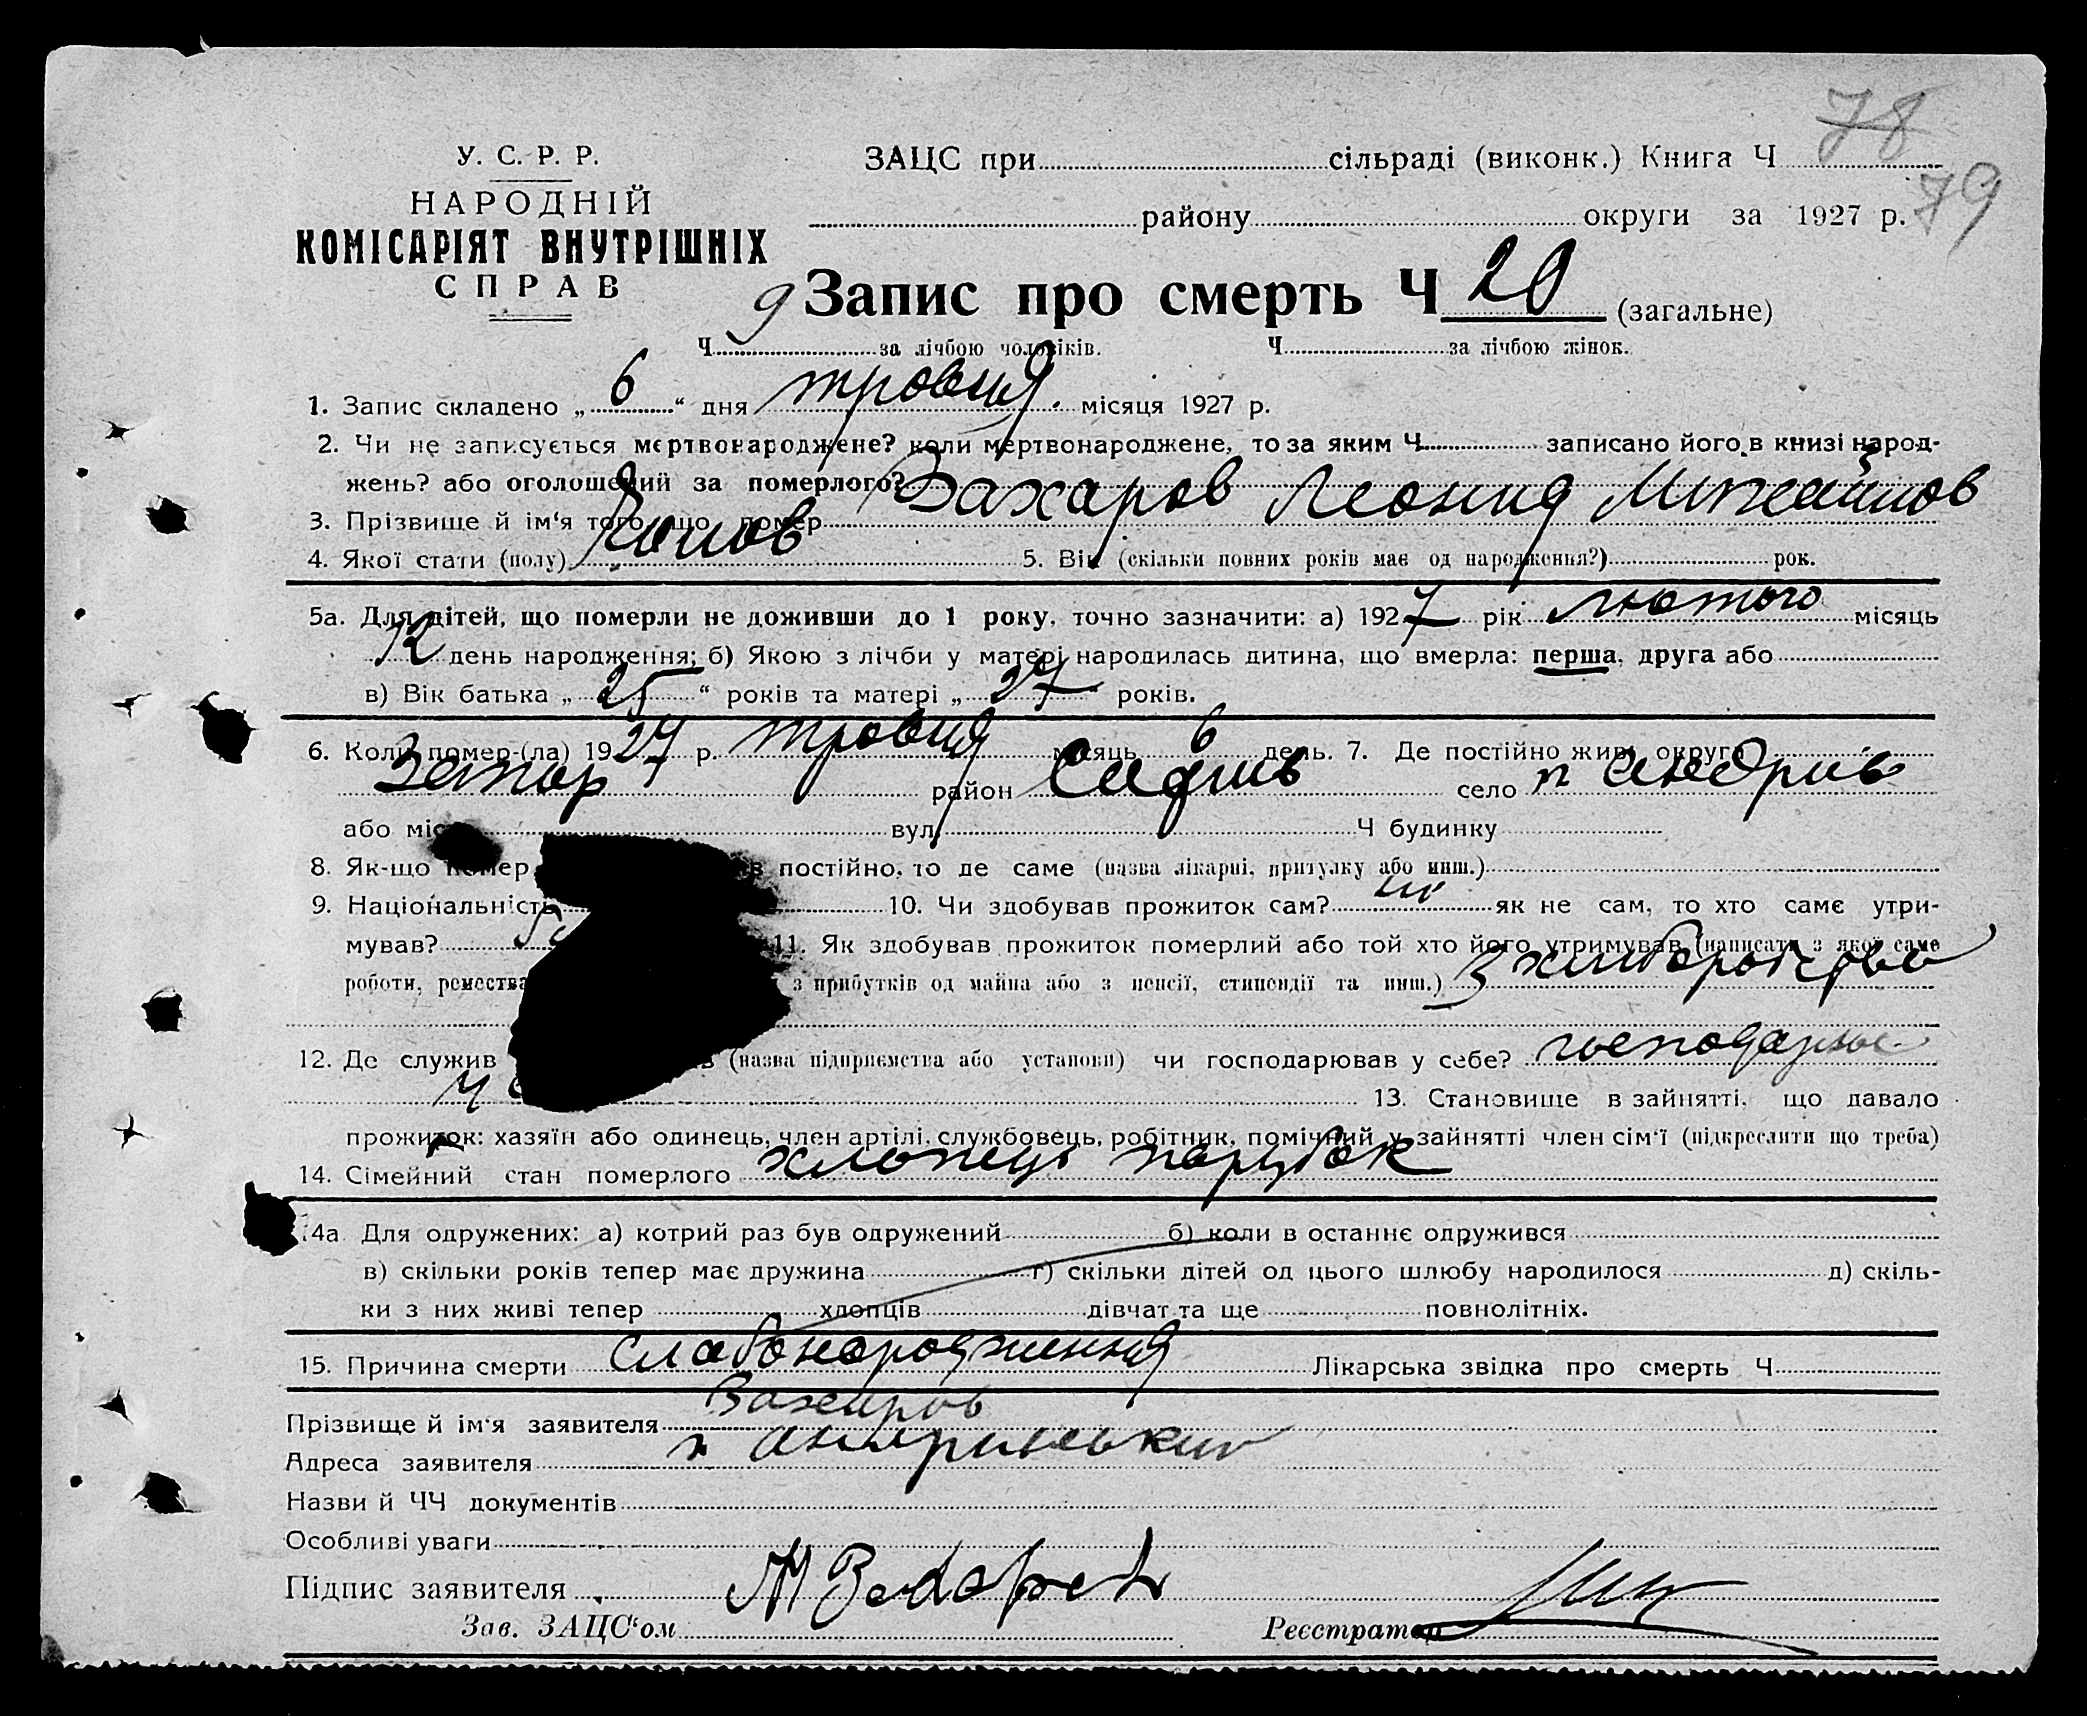 78
79
У. С. Р. Р.
НАРОДНІЙ
КОМІСАРІЯТ ВНУТРІШНІХ
СПРАВ
ЗАЦС при сільраді (виконк.) Книга Ч
району округи за 1927 р.
Запис про смерть Ч 20 (загальне)
Ч 9 за лічбою чоловіків. Ч за лічбою жінок.
1. Запис складено „ 6 “ дня травня місяця 1927 р.
2. Чи не записується мертвонароджене? коли мертвонароджене, то за яким Ч записано його в книзі народ-
жень? або оголошений за померлого?
3. Прізвище й ім‘я того, що помер Захаров Леонид Михайлов
4. Якої стати (полу) 5. Вік (скільки повних років має од народження?) рок.
5а. Для дітей, що померли не доживши до 1 року, точно зазначити: а) 1927 рік лютого місяць
12 день народження; б) Якою з лічби у матері народилась дитина, що вмерла: перша, друга або
в) Вік батька „ 25 “ років та матері „ 27 “ років.
6. Коли помер-(ла) 1927 р. травня місяць 6 день. 7. Де постійно жив: округа
район село
або міс вул. Ч будинку
8. Як-що помер в постійно, то де саме (назва лікарні, притулку або инш.)
9. Національність 10. Чи здобував прожиток сам? ні як не сам, то хто саме утри-
мував? 11. Як здобував прожиток померлий або той хто його утримував (написати з якої саме
роботи, ремества з прибутків од майна або з пенсії, стипендії та инш.) З хліборобства
12. Де служив в (назва підприємства або установи) чи господарював у себе?
13. Становище в зайнятті, що давало
прожиток: хазяїн або одинець, член артілі, службовець, робітник, помічний у зайнятті член сім‘ї (підкреслити що треба)
14. Сімейний стан померлого хлопець парубок
14а Для одружених: а) котрий раз був одружений б) коли в останнє одружився
в) скільки років тепер має дружина г) скільки дітей од цього шлюбу народилося д) скіль-
ки з них живі тепер хлопців дівчат та ще повнолітніх.
15. Причина смерти слабонародження Лікарська звідка про смерть Ч
Прізвище й ім‘я заявителя Захаров
Адреса заявителя
Назви й ЧЧ документів
Особливі уваги
Підпис заявителя М Захаров
Зав. ЗАЦС‘ом Реєстратор